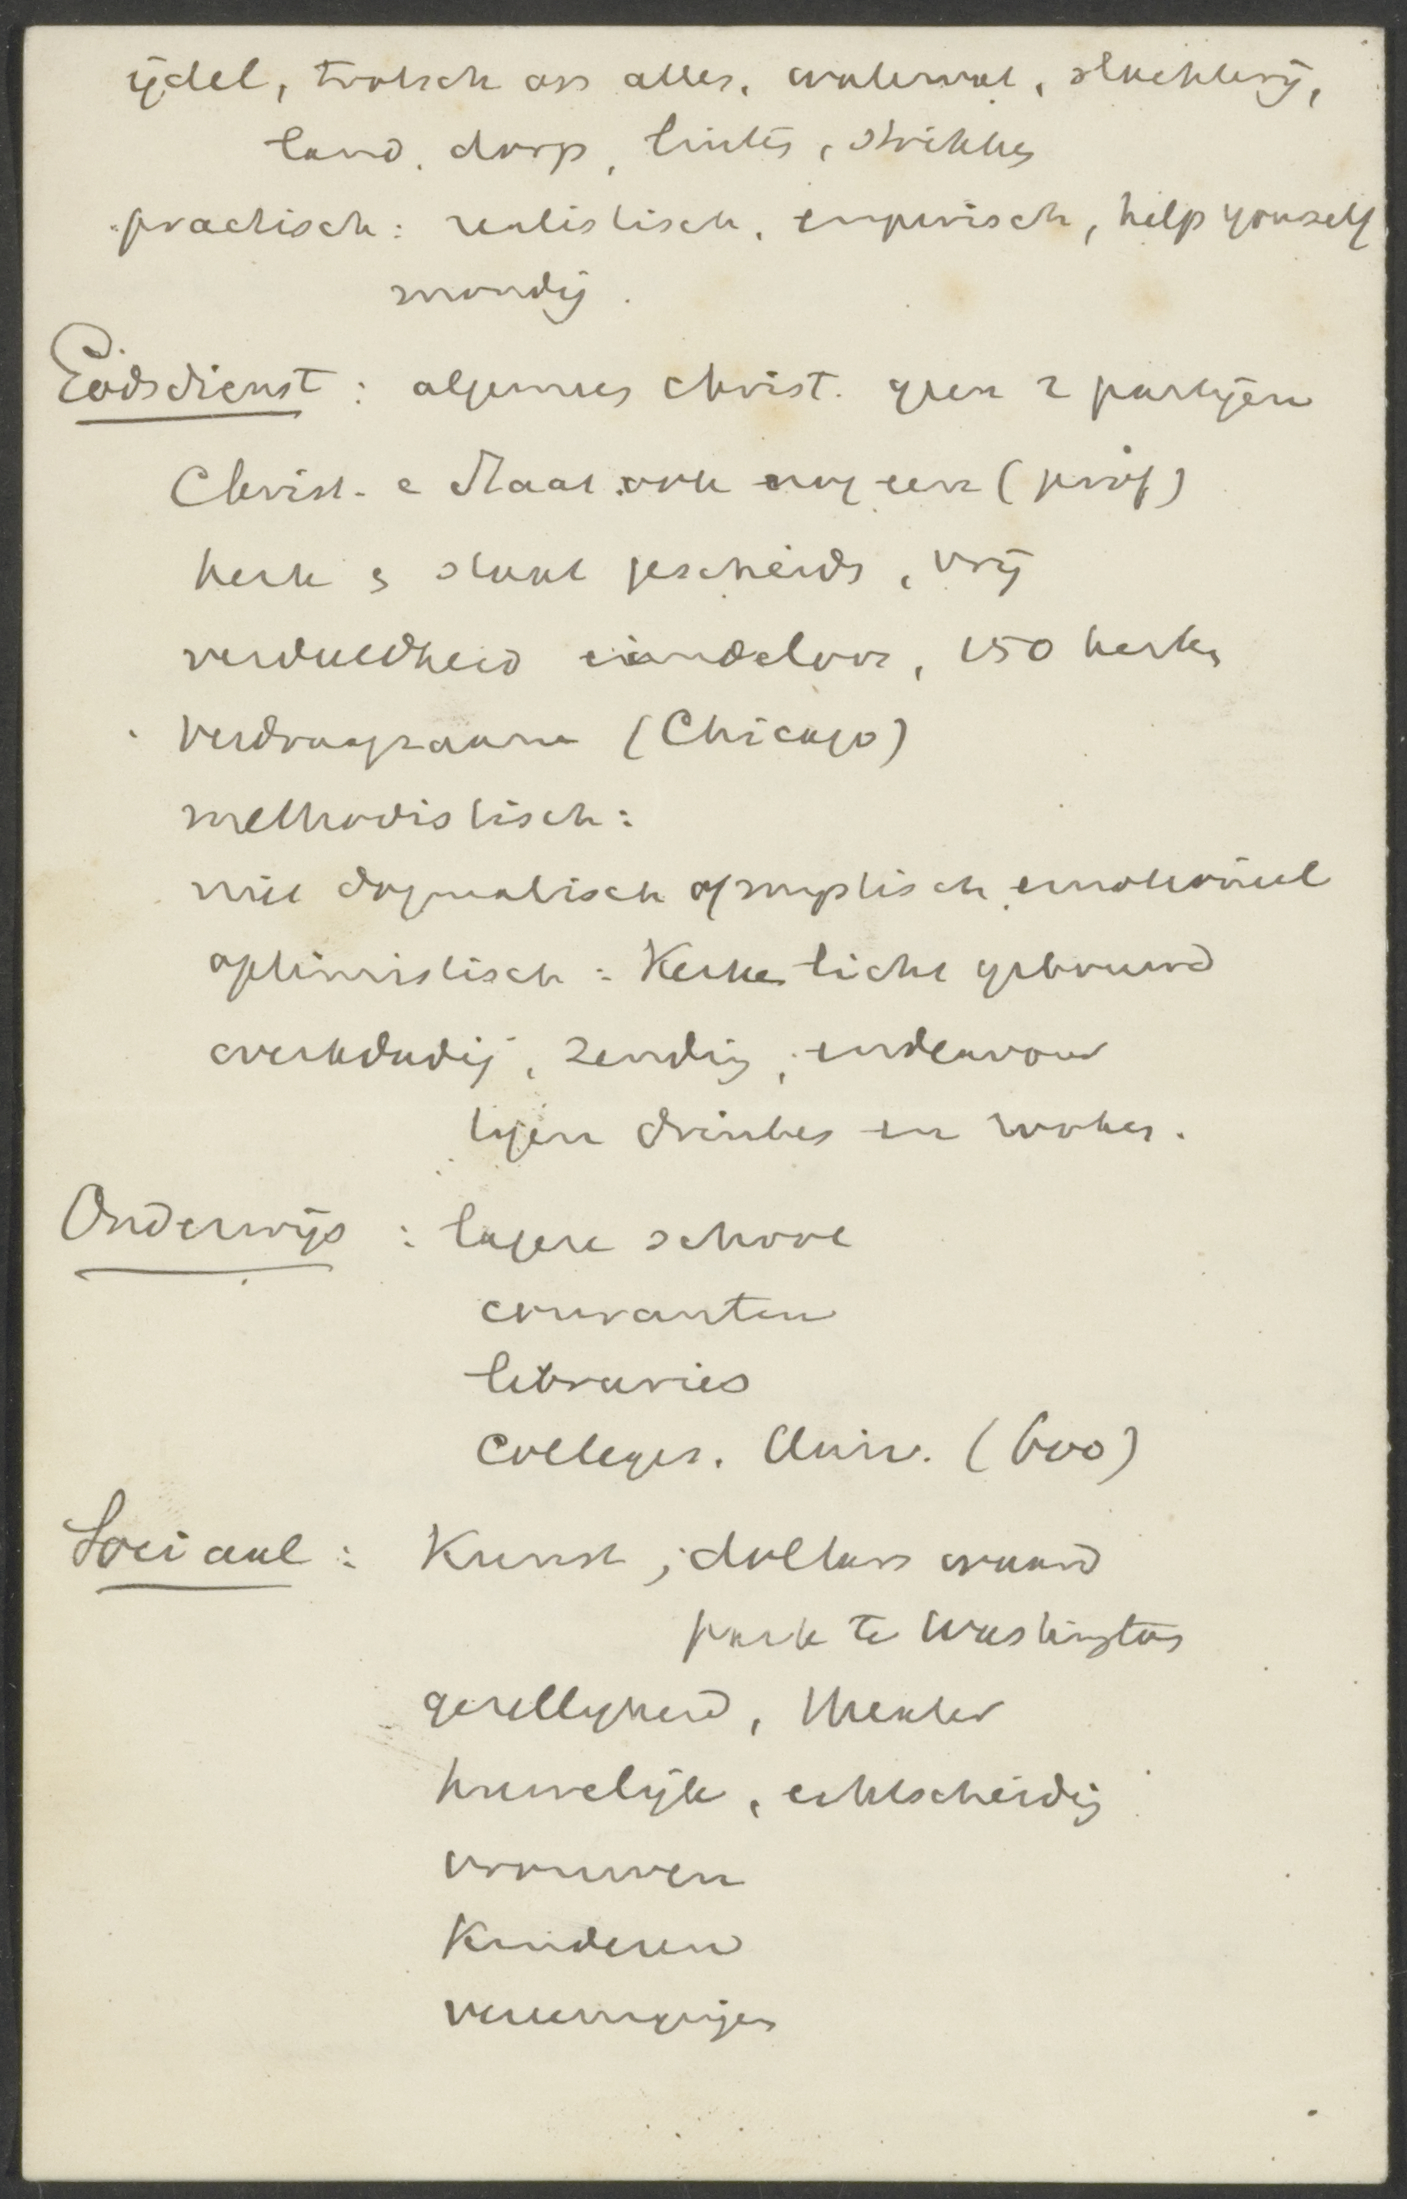 ijdel, trotsch op alles, waterval, slachterij,
land, dorp, lintes, strikkes
practisch: realistisch, empirisch, help yourself
mondig.
Godsdienst: algemeen christ. geen 2 partijen
Christ. e Staat ook nog een (prof)
kerk en staat gescheids, vrij
verdeeldheid eindeloos, 150 kerken
verdraagzaam (Chicago)
methodistisch:
niet dogmatisch of mystisch, emotioneel
optimistisch: Kerken licht gebouwd
werkdadig, zending, endeavour
tegen drinken en rooken.
Onderwijs: lagere school
couranten
libraries
Colleges. Univ. (600)
Sociaal: Kunst; dollars waard
park te Washington
gezelligheid, theater
huwelijk, echtscheiding
vrouwen
Kinderen
vereenigingen